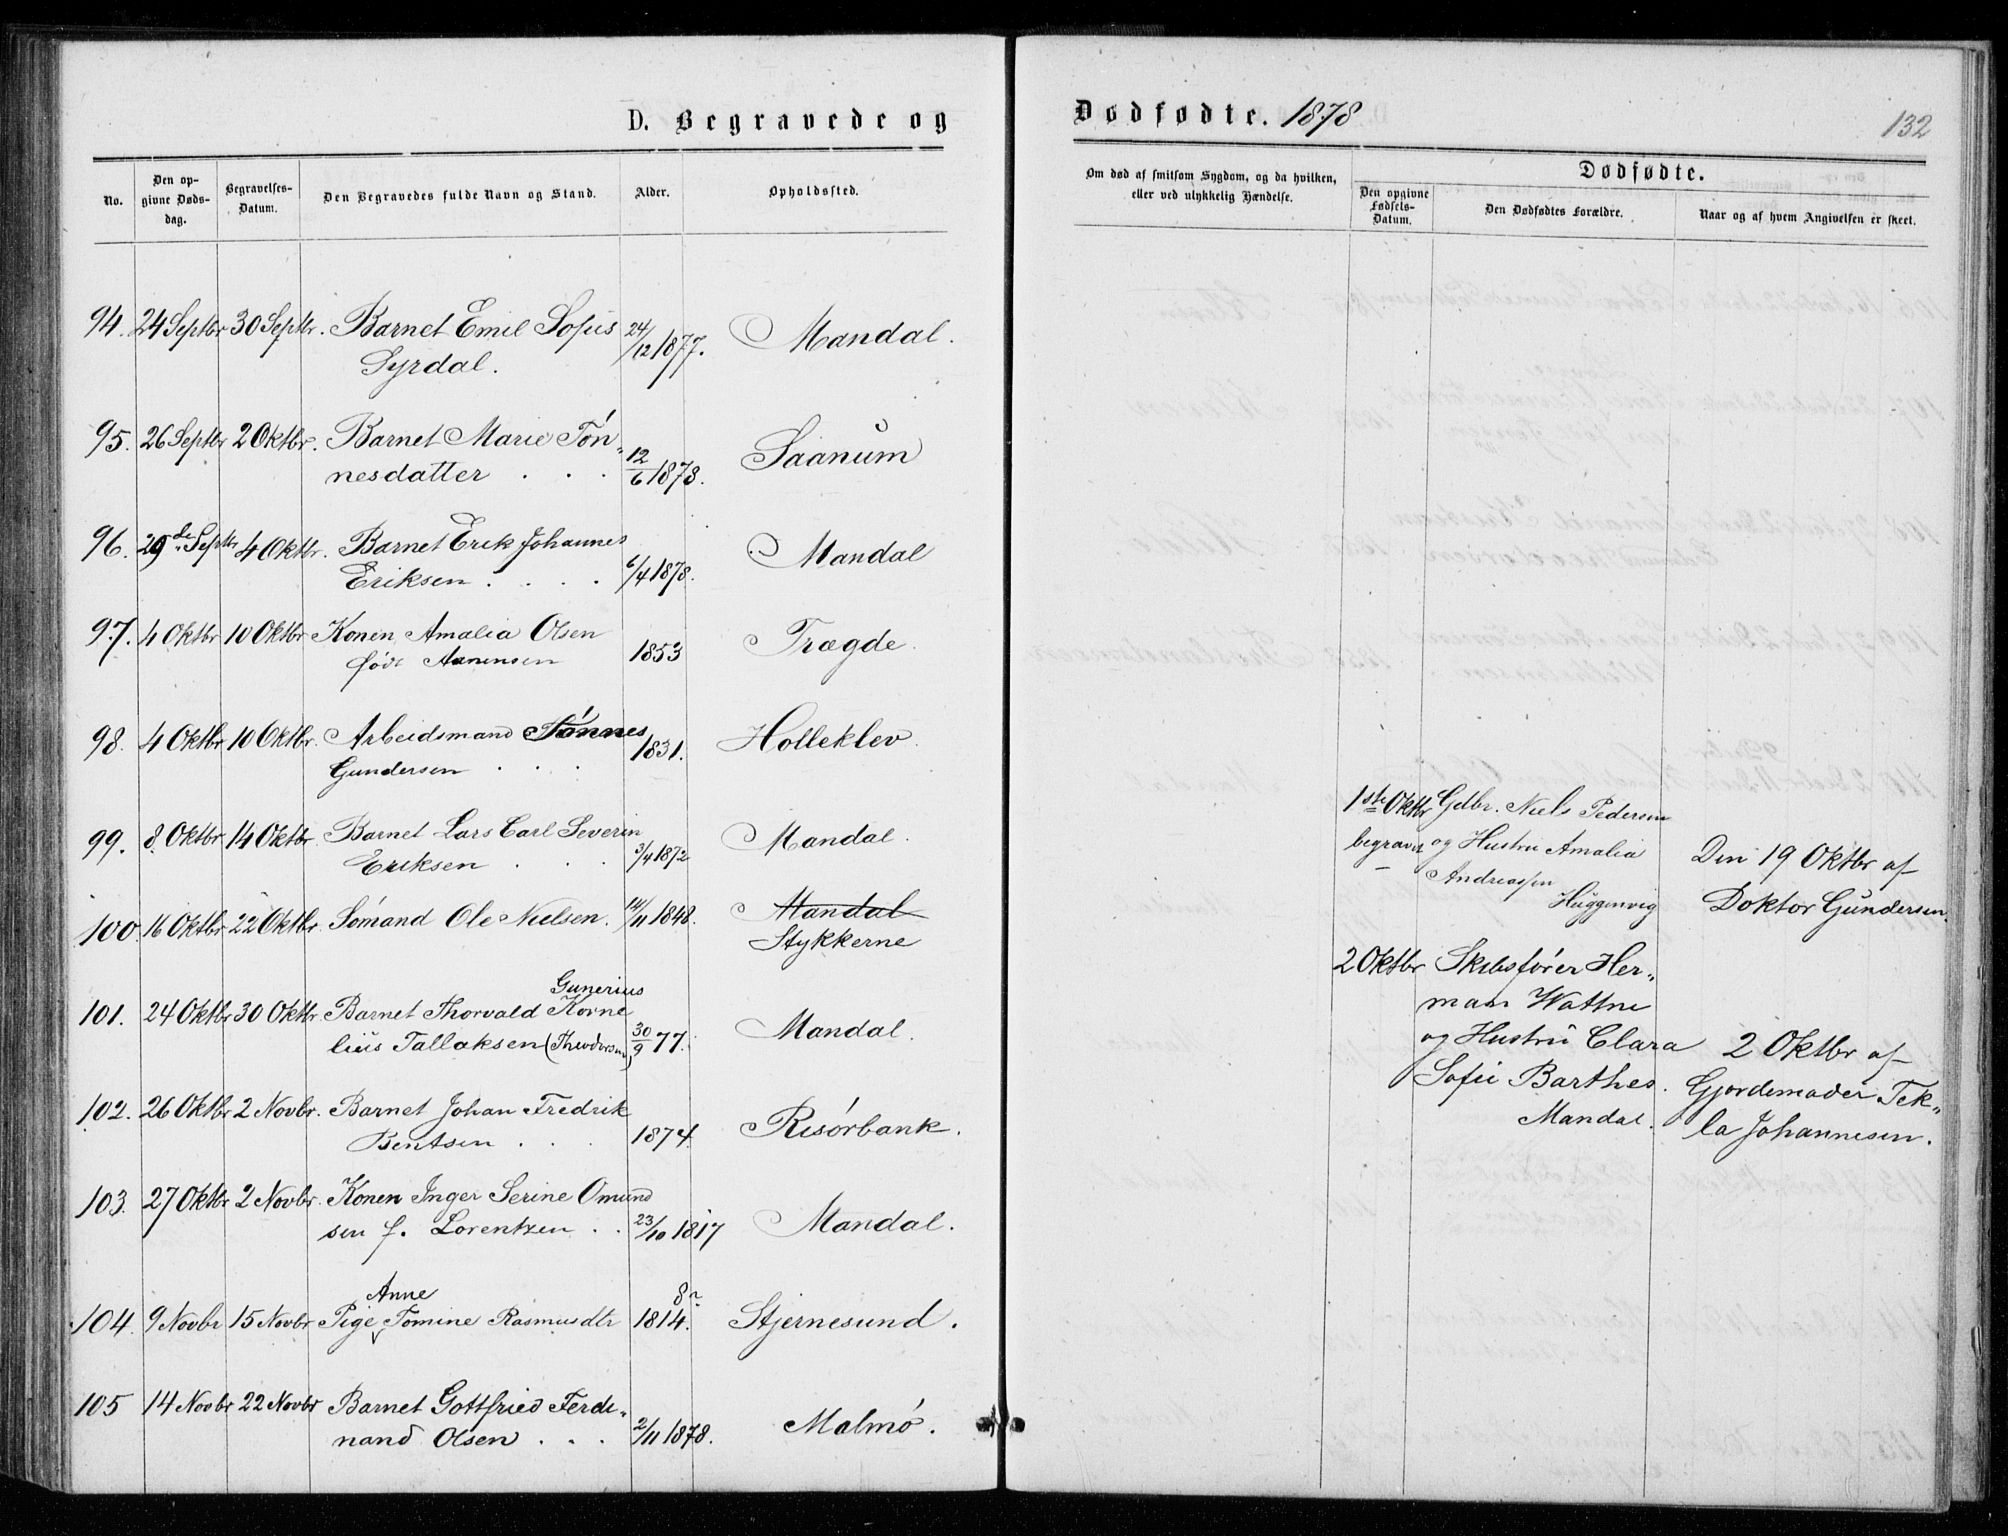 D. Begravede og
No.
Den op-
givne Døds-
dag.
Begravelses-
Datum.
Den Begravedes fulde Navn og Stand.
Alder.
Opholdssted.
94. 24 Septbr 30 Septbr. Barnet Emil Sofus 24/12 1877. Mandal.
Syrdal.
95. 26 Septbr 2 Oktbr. Barnet Marie Tøn„ Saanum
nesdatter . . . 12/6 1878.
96. 29de Septbr 4 Oktbr. Barnet Erik Johannes Mandal
Eriksen . . . . 6/4 1878.
97. 4 Oktbr 10 Oktbr Konen Amalia Olsen Trægde.
født Aanensen 1853
98. 4 Oktbr 10 Oktbr. Arbeidsmand Tønnes 1831. Holleklev.
Gundersen . . .
99. 8. Oktbr 14 Oktbr Barnet Lars Carl Severin Mandal.
Eriksen . . . 3/4 1872
100. 16 Oktbr 22 Oktbr. Sømand Ole Nielsen. 14/11 1848. Mandal
Stykkerne
Gunerius
101. 24 Oktbr 30 Oktbr. Barnet Thorvald Korne
lius Tallaksen (Theodorsen) 30/9 77. Mandal.
102. 26 Oktbr 2 Novbr. Barnet Johan Fredrik
Bentsen . . . 1874. Risørbank.
103. 27 Oktbr 2 Novbr. Konen Inger Serine Omund
sen f. Lorentzen . . 23/10 1817 Mandal.
Anne
104. 9 Novbr 15 Novbr Pige Tomine Rasmusdtr 1814. Stjernesund.
105 14 Novbr 22 Novbr Barnet Gottfried Ferdi„
nand Olsen . . . 2/11 1878. Malmø.
Dødfødte. 1878
132
Om død af smitsom Sygdom, og da hvilken,
eller ved ulykkelig Hændelse.
Dødfødte.
Den opgivne
Fødsels-
Datum.
Den Dødfødtes Forældre.
Naar og af hvem Angivelsen er skeet.
1ste Oktbr Gdbr. Niels Pedersen
begravet og Hustru Amalia Den 19 Oktbr af
Andreassen
Huggenvig Doktor Gundersen.
2 Oktbr Skibsfører Her„
man Wattne
og Hustru Clara 2 Oktbr af
Sofie Barthes. Gjordemoder Tek„
Mandal. la Johannesen.